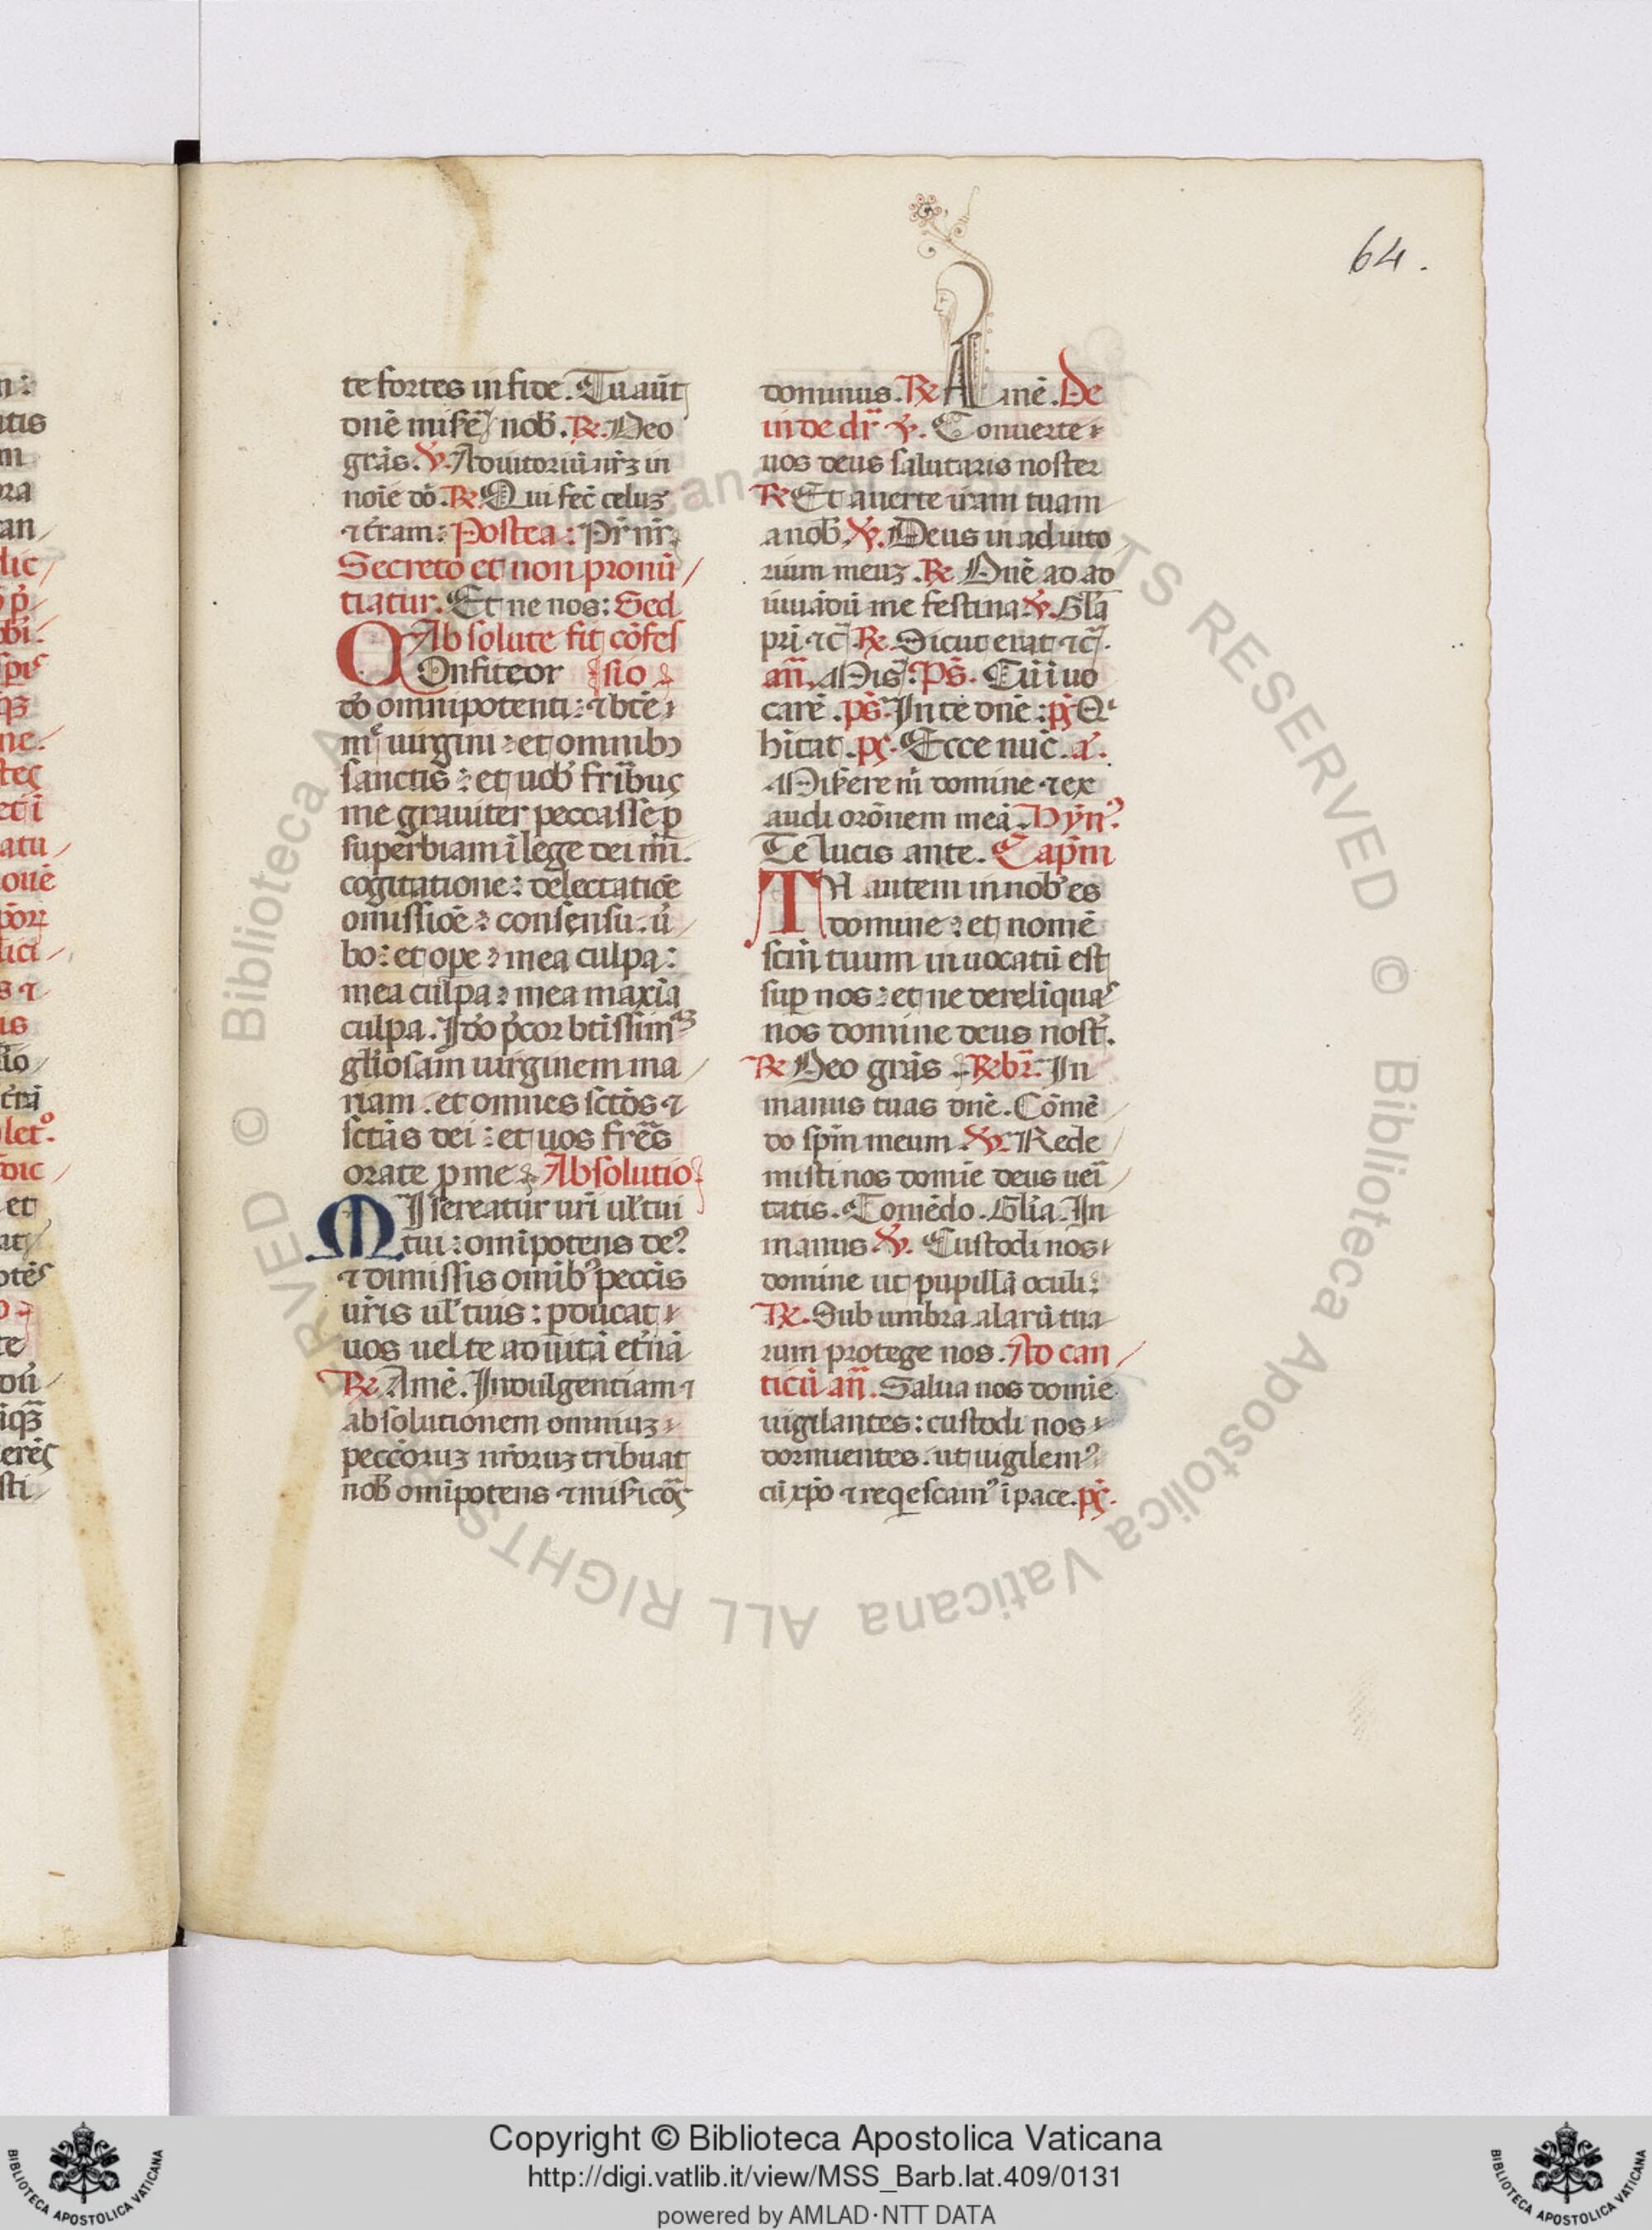 64.
te fortes in fide. Tu aūt
dn̄e misere nob̄. ℞. Deo
grās. ℣. Adiutoriū nr̄ꝫ in
noīe dō. ℞. Qui fec̄ celuꝫ
⁊ t̄ram: Postea: Pr̄ nr̄.
Secreto et non pronū/
tiatur. Et ne nos: Sed
Absolute fit cōfes
COnfiteor sio
dō omnipotenti: ⁊ bt̄e
mͤ uirgini: et omnibꝫ
sanctis: et uob̄ fr̄ibus
me grauiter peccasse ꝑ
superbiam ī lege dei mr̄i.
cogitatione: delectatiōe
omissiōe: consensu. u̓
bo: et oꝑe: mea culpa:
mea culpa: mea maxīa
culpa. Idō p̄cor bt̄issimāꝫ
gl̄iosam uirginem ma/
riam. et omnes sctōs ⁊
sctās dei: et uos fr̄es
orate ꝓ me. Absolutio
MIsereatur ur̄i ul̓ tui
tui: omīpotens de᷒
⁊ dimissis omīb᷒ pecc̄is
ur̄is ul̓ tuis: ꝑducat
uos uel te ad uitā et̄nā
℞. Amē. Indulgentiam ⁊
absolutionem omniuꝫ
pecc̄oruꝫ nr̄oruꝫ tribuat
nob̄ omīpotens ⁊ misicōs
dominus. ℞ Amē. De
inde dr̄ ℣. Conuerte
nos deus salutaris noster
℞ Et auerte iram tuam
a nob̄. ℣. Deus in adiuto
rium meuꝫ. ℞ Dn̄e ad ad
iuuādū me festina ℣. Gl̄a
pr̄i ⁊c̄ ℞. Sicut erat ⁊c̄.
an̄. Mis̄: Ps̄. Cū īuo
carē. ps̄. In te dn̄e: ps̄ Qͥ
hītat. ps̄. Ecce nūc. a᷒.
Miserere m̄ domine ⁊ ex
audi orōnem meā. Hȳn᷒
Te lucis ante. Capl̄m
TU autem in nob̄ es
domine: et nomē
scm̄ tuum inuocatū est
suꝑ nos: et ne derelinquas
nos domine deus nost̄.
℞ Deo grās. ℞ br̄. In
manus tuas dn̄e. Cōmē
do spm̄ meum. ℣. Rede
misti nos domīe deus ueī
tatis. Comēdo. Gl̄ia. In
manus ℣. Custodi nos
domine ut pupillā oculi:
℞. Sub umbra alarū tua
rum protege nos. Ad can/
ticū an̄. Salua nos domīe
uigilantes: custodi nos
dormientes. ut uigilem᷒
cū xp̄o ⁊ reqescam᷒ ī pace. ps̄.
© Biblioteca Apostolica Vaticana ALL RIGHTS RESERVED
Copyright © Biblioteca Apostolica Vaticana
http://digi.vatlib.it/view/MSS_Barb.lat.409/0131
powered by AMLAD·NTT DATA
BIBLIOTECA APOSTOLICA VATICANA
BIBLIOTECA APOSTOLICA VATICANA